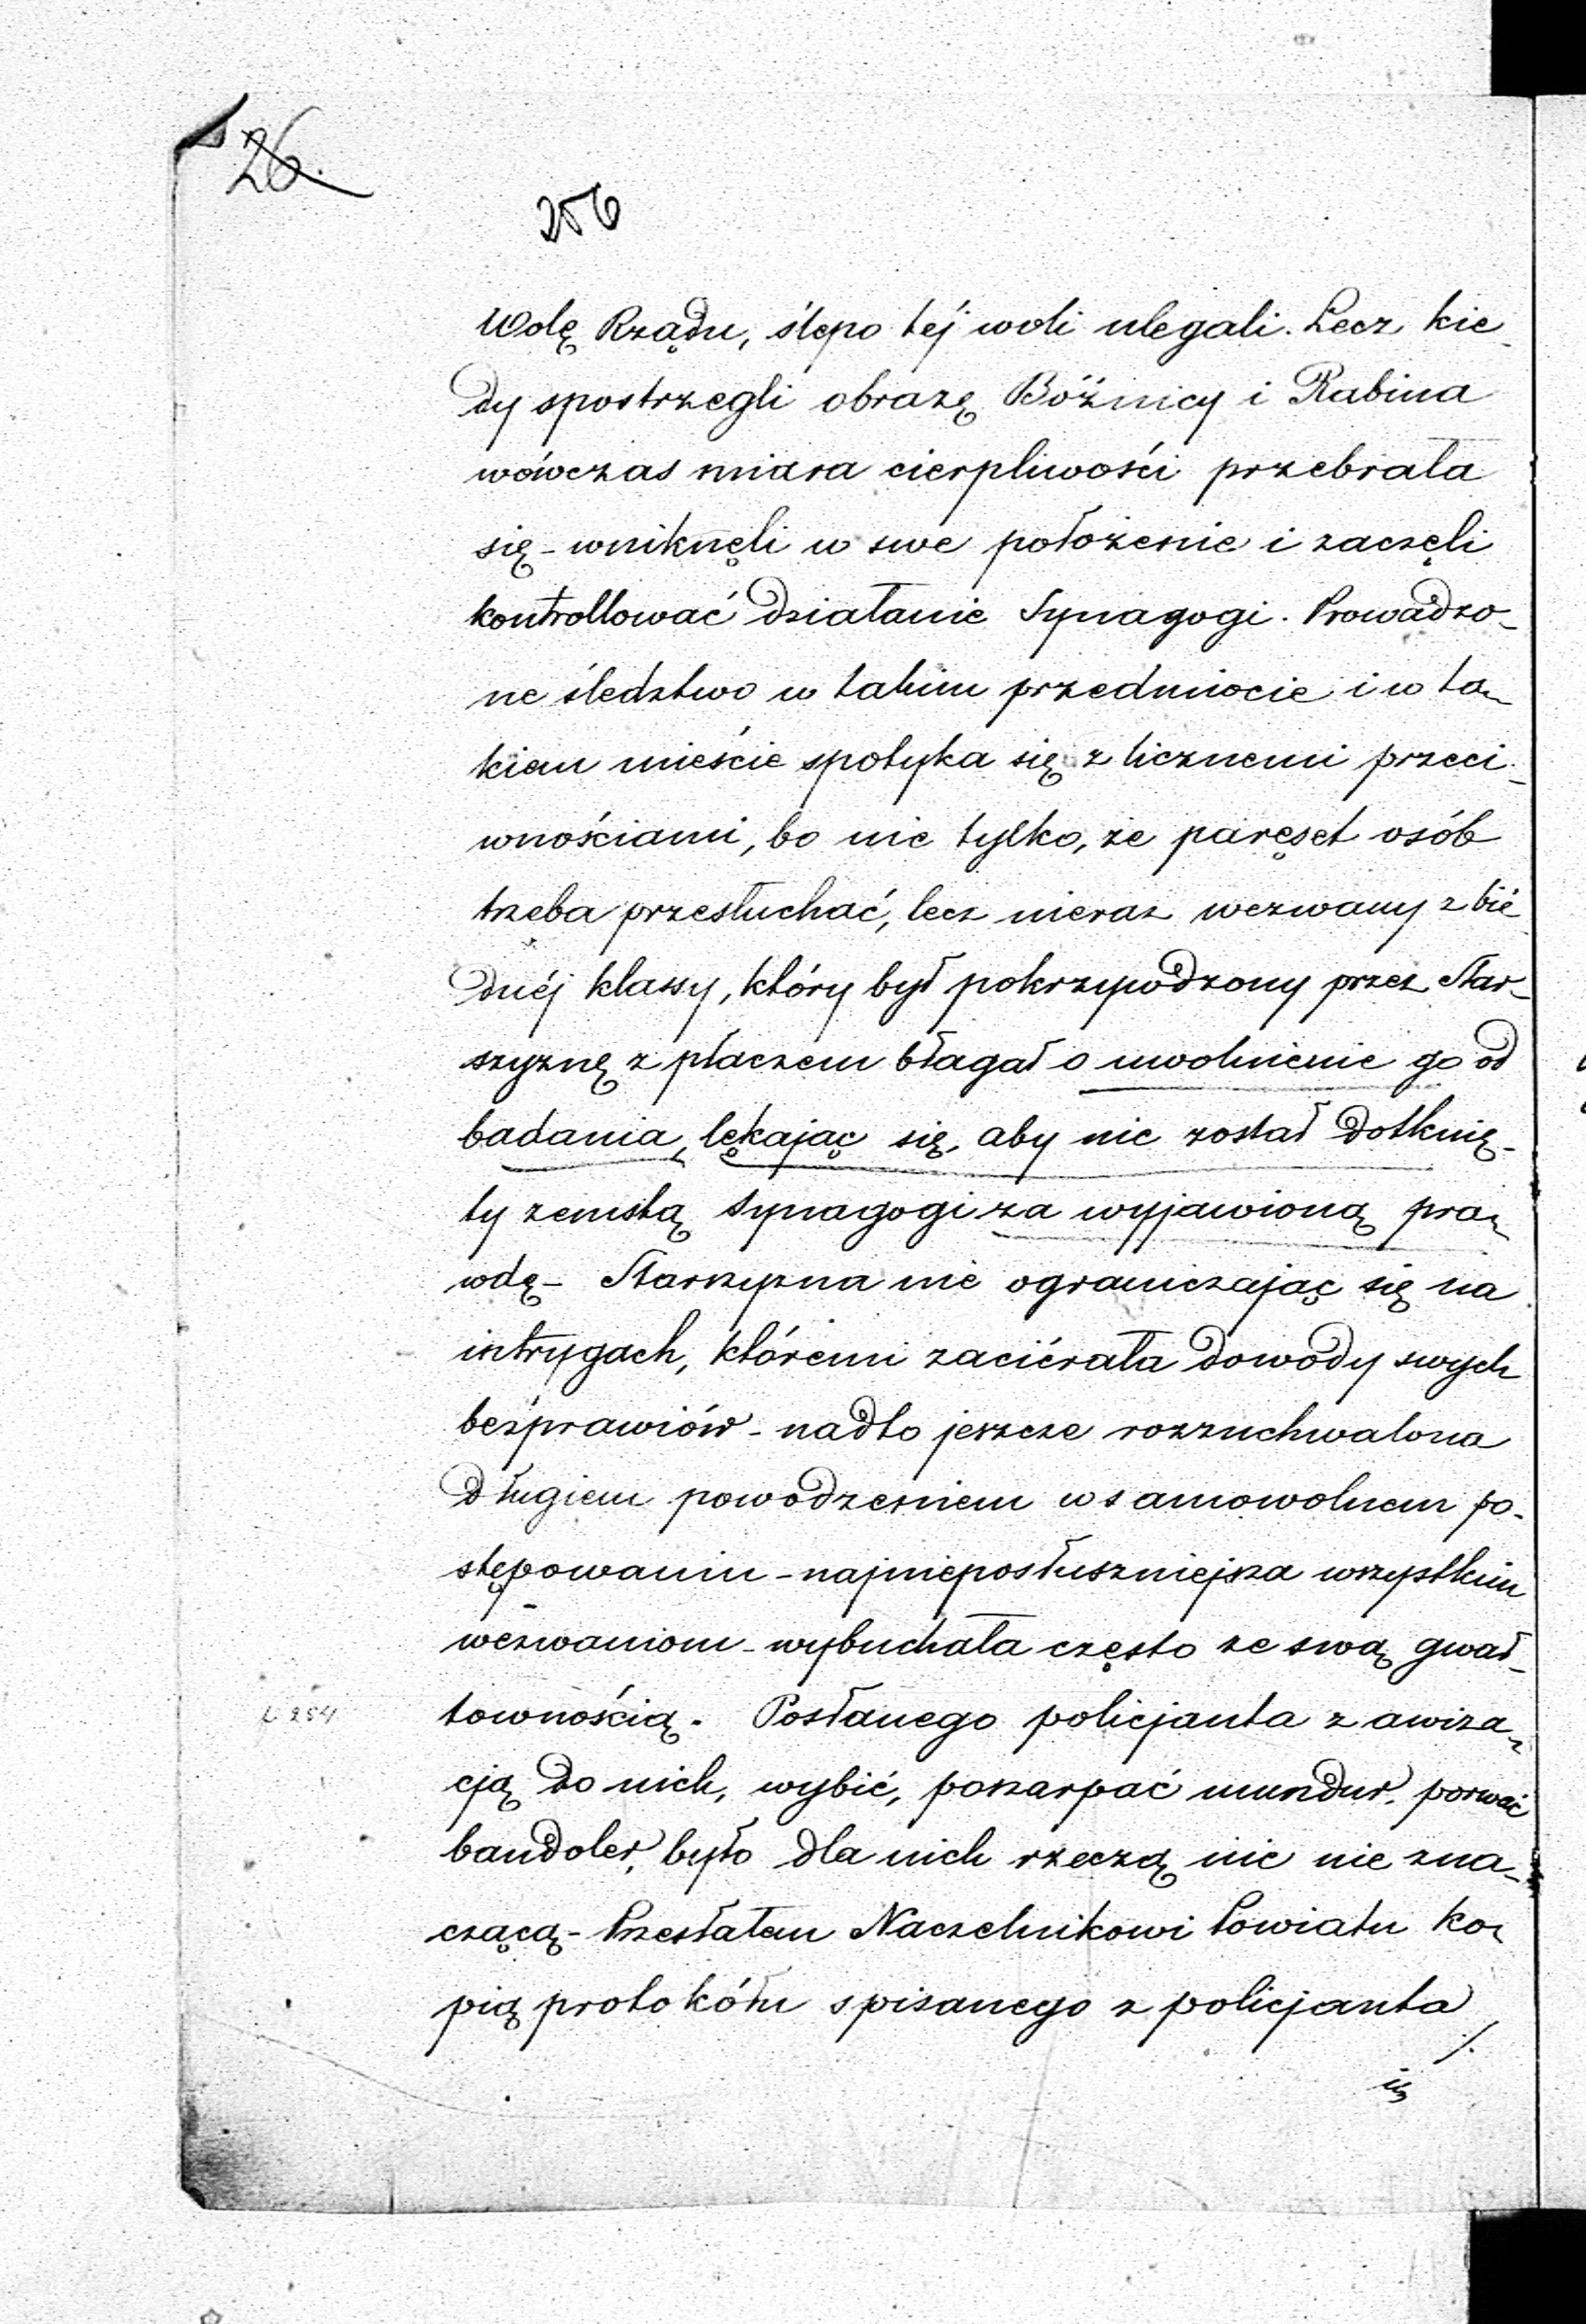 26.
256
Wolę Rządu, ślepo téj woli ulegali. Lecz kie-
dy spostrzegli obrazę Bóżnicy i Rabina
wówczas miara cierpliwości przebrała
się - wniknęli w swe położenie i zaczęli
kontrollować działanie Synagogi. Prowadzo-
ne śledztwo w takim przedmiocie i w ta-
kiem mieście spotyka się z licznemi przeci-
wnościami, bo nie tylko, że paręset osób
trzeba przesłuchać, lecz nieraz wezwany z bié-
dnéj klassy, który był pokrzywdzony przez Star-
szyznę z płaczem błagał o uwolnienie go od
badania, lękając się, aby nie został dotknię-
ty zemstą Synagogi za wyjawioną pra-
wdę - Starszyzna nie ograniczając się na
intrygach, któremi zaciérała dowody swych
bezprawiów - nadto jeszcze rozzuchwalona
długiem powodzeniem w samowolnem po-
stępowaniu - najnieposłuszniejsza wszystkim
wezwaniom - wybuchała często ze swą gwał-
townością. Posłanego policjanta z awiza-
cją do nich, wybić, poszarpać mundur, porwać
bandoler, było dla nich rzeczą nic nie zna-
czącą - Przesłałem Naczelnikowi Powiatu ko-
pią protokółu spisanego z policjanta
./.